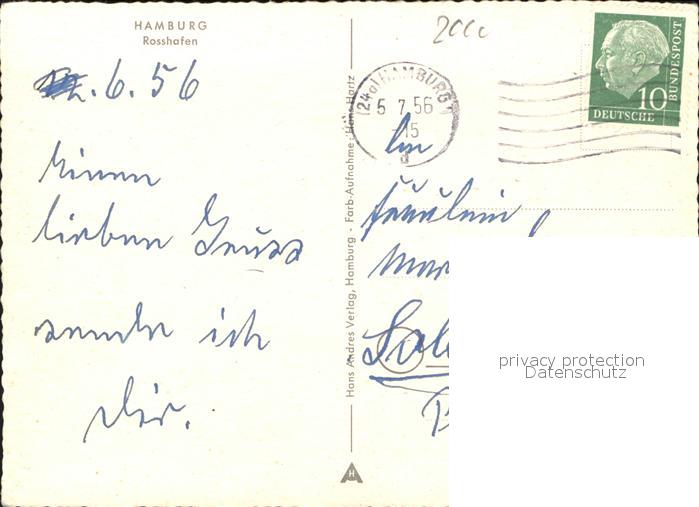 HAMBURG
Rosshafen
.6.56
Einen
lieben Gruss
sende ich
Dir.
Hans Andres Verlag, Hamburg - Farb-Aufnahme: Hans Hartz
H
2000
(24a) HAMBURG 1
5 7.56
-15
d
10
DEUTSCHE
BUNDESPOST
An
Fräulein
privacy protection
Datenschutz